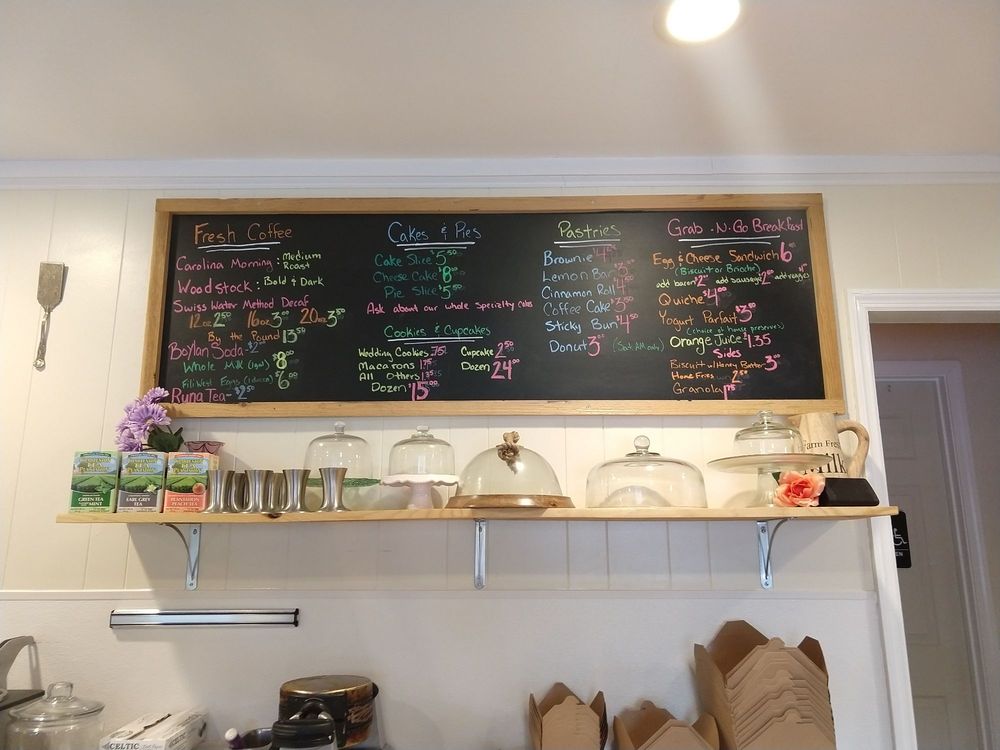 Fresh Coffee
Carolina Morning: Medium Roast
Woodstock: Bold & Dark
Swiss Water Method Decaf
12oz 2.50 16oz 3.00 20oz 3.50
By the Pound 13.50
Boylan Soda
Whole Milk
Runa Tea
Cakes & Pies
Cake Slice $5.50
Cheese Cake $8.00
Pie Slice $5.50
Ask about our whole specialty cakes
Cookies & Cupcakes
Wedding Cookies .75
Macarons
All Others 1.35
Dozen $15.00
Cupcake 2.50
Dozen 24.00
Pastries
Brownie
Lemon Bar
Cinnamon Roll
Coffee Cake
Sticky Bun $4.50
Donut 3.00 (Sat. AM only)
Grab-N-Go Breakfast
Egg & Cheese Sandwich 6
(Biscuit or Brioche)
add bacon add sausage add veggies
Quiche $4.00
Yogurt Parfait
(choice of house preserves)
Orange Juice
Sides
Biscuit w/Honey Butter
Home Fries
Granola
GREEN TEA
MINT
TEA
EARL GREY
TEA
PLANTATION
PEACH TEA
Farm Fresh
Milk
CELTIC